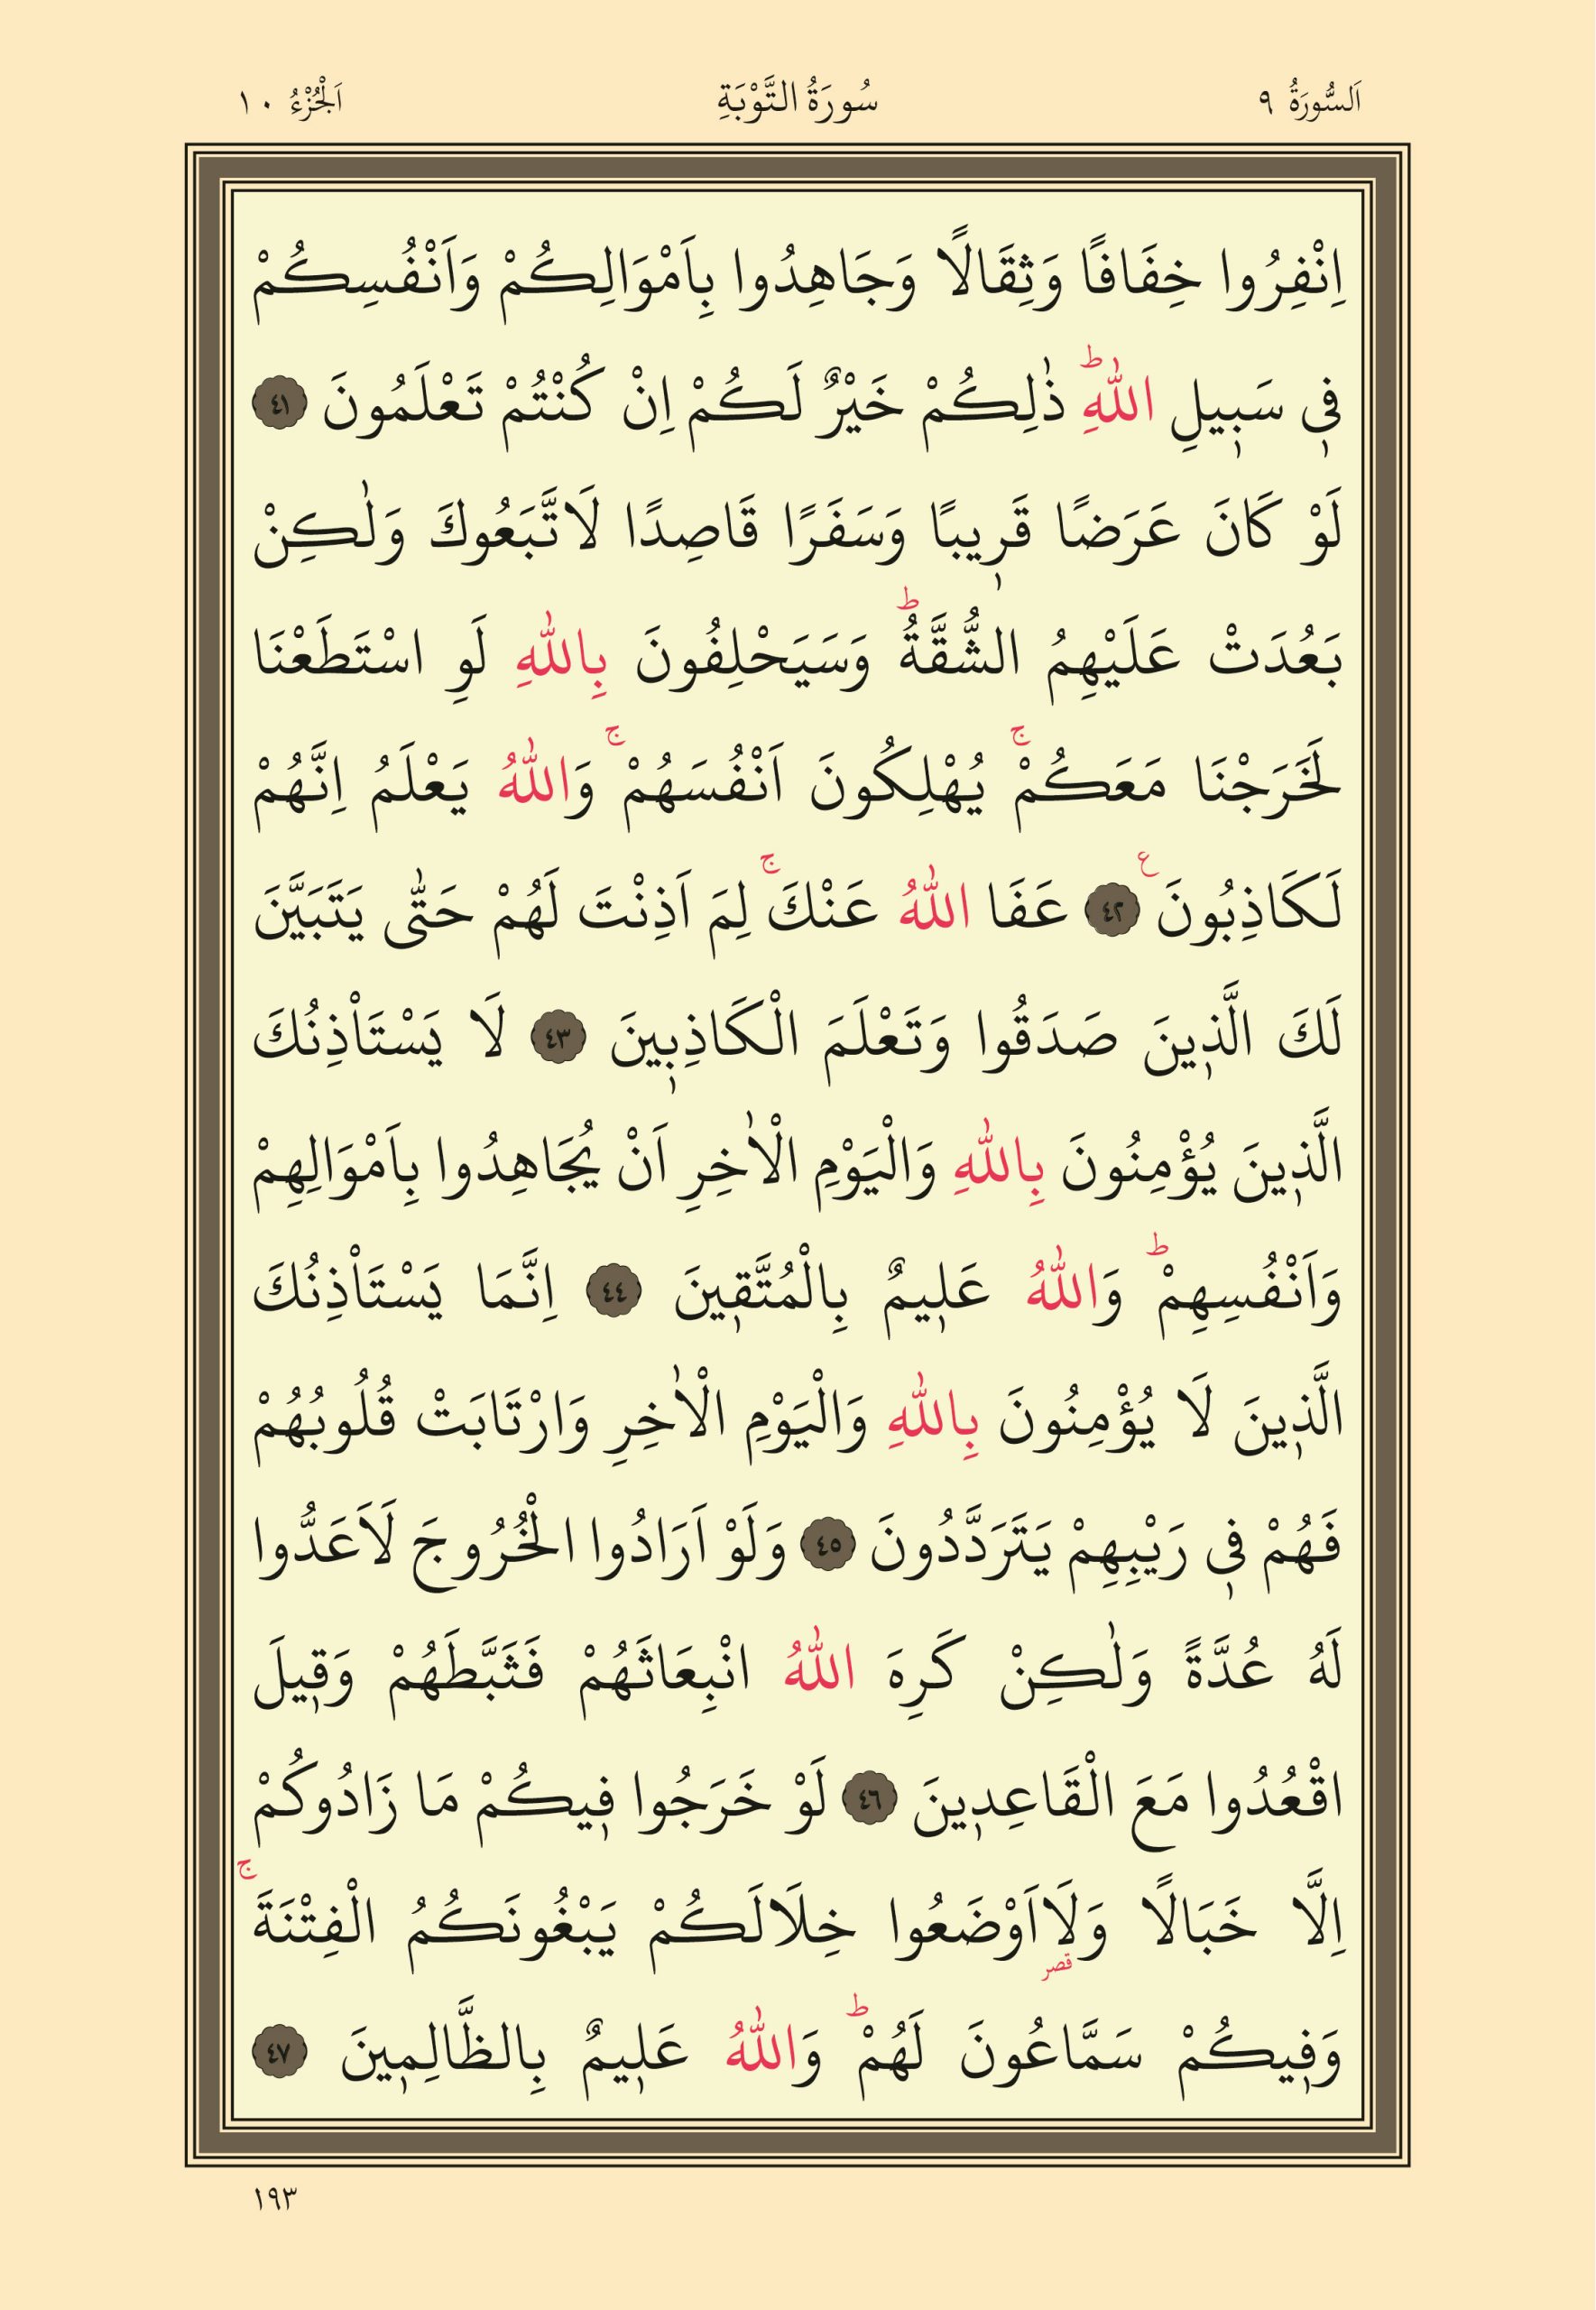 اَلسُّورَةُ ٩ سُورَةُ التَّوْبَةِ اَلْجُزْءُ ١٠
اِنْفِرُوا خِفَافًا وَثِقَالًا وَجَاهِدُوا بِاَمْوَالِكُمْ وَاَنْفُسِكُمْ
ف۪ي سَب۪يلِ اللّٰهِۜ ذٰلِكُمْ خَيْرٌ لَكُمْ اِنْ كُنْتُمْ تَعْلَمُونَ ٤١
لَوْ كَانَ عَرَضًا قَر۪يبًا وَسَفَرًا قَاصِدًا لَاتَّبَعُوكَ وَلٰكِنْ
بَعُدَتْ عَلَيْهِمُ الشُّقَّةُۜ وَسَيَحْلِفُونَ بِاللّٰهِ لَوِ اسْتَطَعْنَا
لَخَرَجْنَا مَعَكُمْۚ يُهْلِكُونَ اَنْفُسَهُمْۚ وَاللّٰهُ يَعْلَمُ اِنَّهُمْ
لَكَاذِبُونَ ع ٤٢ عَفَا اللّٰهُ عَنْكَۚ لِمَ اَذِنْتَ لَهُمْ حَتّٰى يَتَبَيَّنَ
لَكَ الَّذ۪ينَ صَدَقُوا وَتَعْلَمَ الْكَاذِب۪ينَ ٤٣ لَا يَسْتَاْذِنُكَ
الَّذ۪ينَ يُؤْمِنُونَ بِاللّٰهِ وَالْيَوْمِ الْاٰخِرِ اَنْ يُجَاهِدُوا بِاَمْوَالِهِمْ
وَاَنْفُسِهِمْۜ وَاللّٰهُ عَل۪يمٌ بِالْمُتَّق۪ينَ ٤٤ اِنَّمَا يَسْتَاْذِنُكَ
الَّذ۪ينَ لَا يُؤْمِنُونَ بِاللّٰهِ وَالْيَوْمِ الْاٰخِرِ وَارْتَابَتْ قُلُوبُهُمْ
فَهُمْ ف۪ي رَيْبِهِمْ يَتَرَدَّدُونَ ٤٥ وَلَوْ اَرَادُوا الْخُرُوجَ لَاَعَدُّوا
لَهُ عُدَّةً وَلٰكِنْ كَرِهَ اللّٰهُ انْبِعَاثَهُمْ فَثَبَّطَهُمْ وَق۪يلَ
اقْعُدُوا مَعَ الْقَاعِد۪ينَ ٤٦ لَوْ خَرَجُوا ف۪يكُمْ مَا زَادُوكُمْ
اِلَّا خَبَالًا وَلَااَوْضَعُوا خِلَالَكُمْ يَبْغُونَكُمُ الْفِتْنَةَۚ
قصر
وَف۪يكُمْ سَمَّاعُونَ لَهُمْۜ وَاللّٰهُ عَل۪يمٌ بِالظَّالِم۪ينَ ٤٧
١٩٣